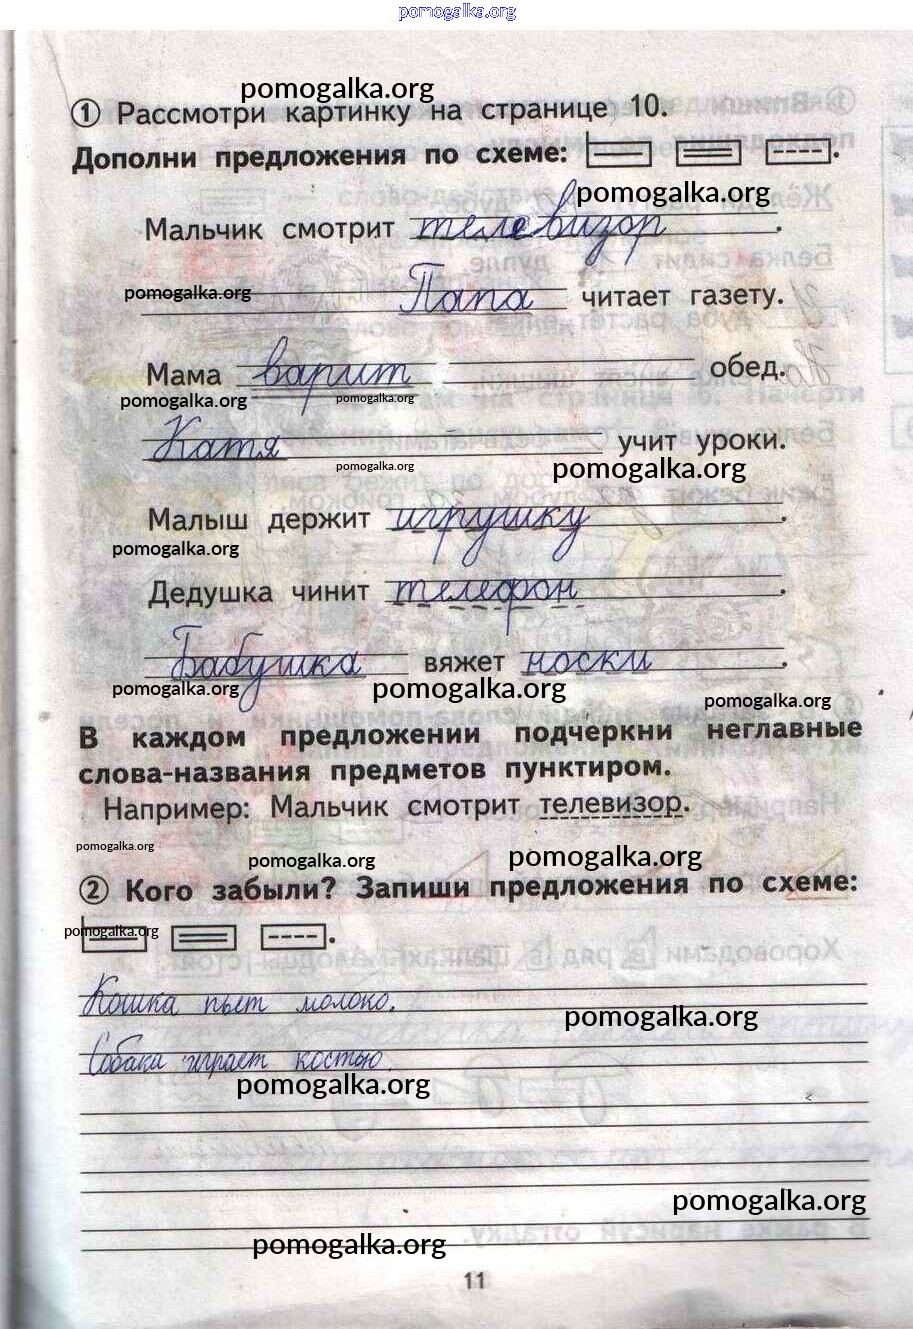 pomogalka.org
pomogalka.org
① Рассмотри картинку на странице 10.
Дополни предложения по схеме:
pomogalka.org
Мальчик смотрит телевизор.
pomogalka.org
Папа читает газету.
Мама варит обед.
pomogalka.org pomogalka.org
Катя учит уроки.
pomogalka.org pomogalka.org
Малыш держит игрушку.
pomogalka.org
Дедушка чинит телефон.
Бабушка вяжет носки.
pomogalka.org pomogalka.org pomogalka.org
В каждом предложении подчеркни неглавные
слова-названия предметов пунктиром.
Например: Мальчик смотрит телевизор.
pomogalka.org pomogalka.org pomogalka.org
② Кого забыли? Запиши предложения по схеме:
pomogalka.org
Кошка пьет молоко.
pomogalka.org
Собака играет костью.
pomogalka.org
pomogalka.org
pomogalka.org
11